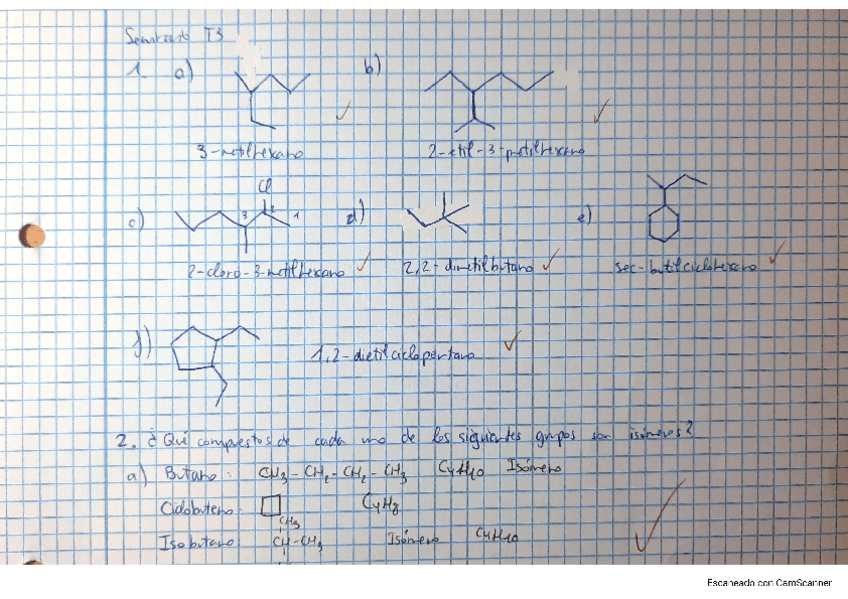 Seminario T3
1. a) b)
3-metilhexano 2-etil-3-metilhexano
Cl
c) 3 2 1 d) e)
2-cloro-3-metilhexano 2,2-dimetilbutano sec-butilciclohexano
f) 1,2-dietilciclopentano
2. ¿Qué compuestos de cada uno de los siguientes grupos son isómeros?
a) Butano: CH3-CH2-CH2-CH3 C4H10 Isómero
Ciclobuteno: C4H8
CH3
Isobutano: CH-CH3 Isómero C4H10
Escaneado con CamScanner